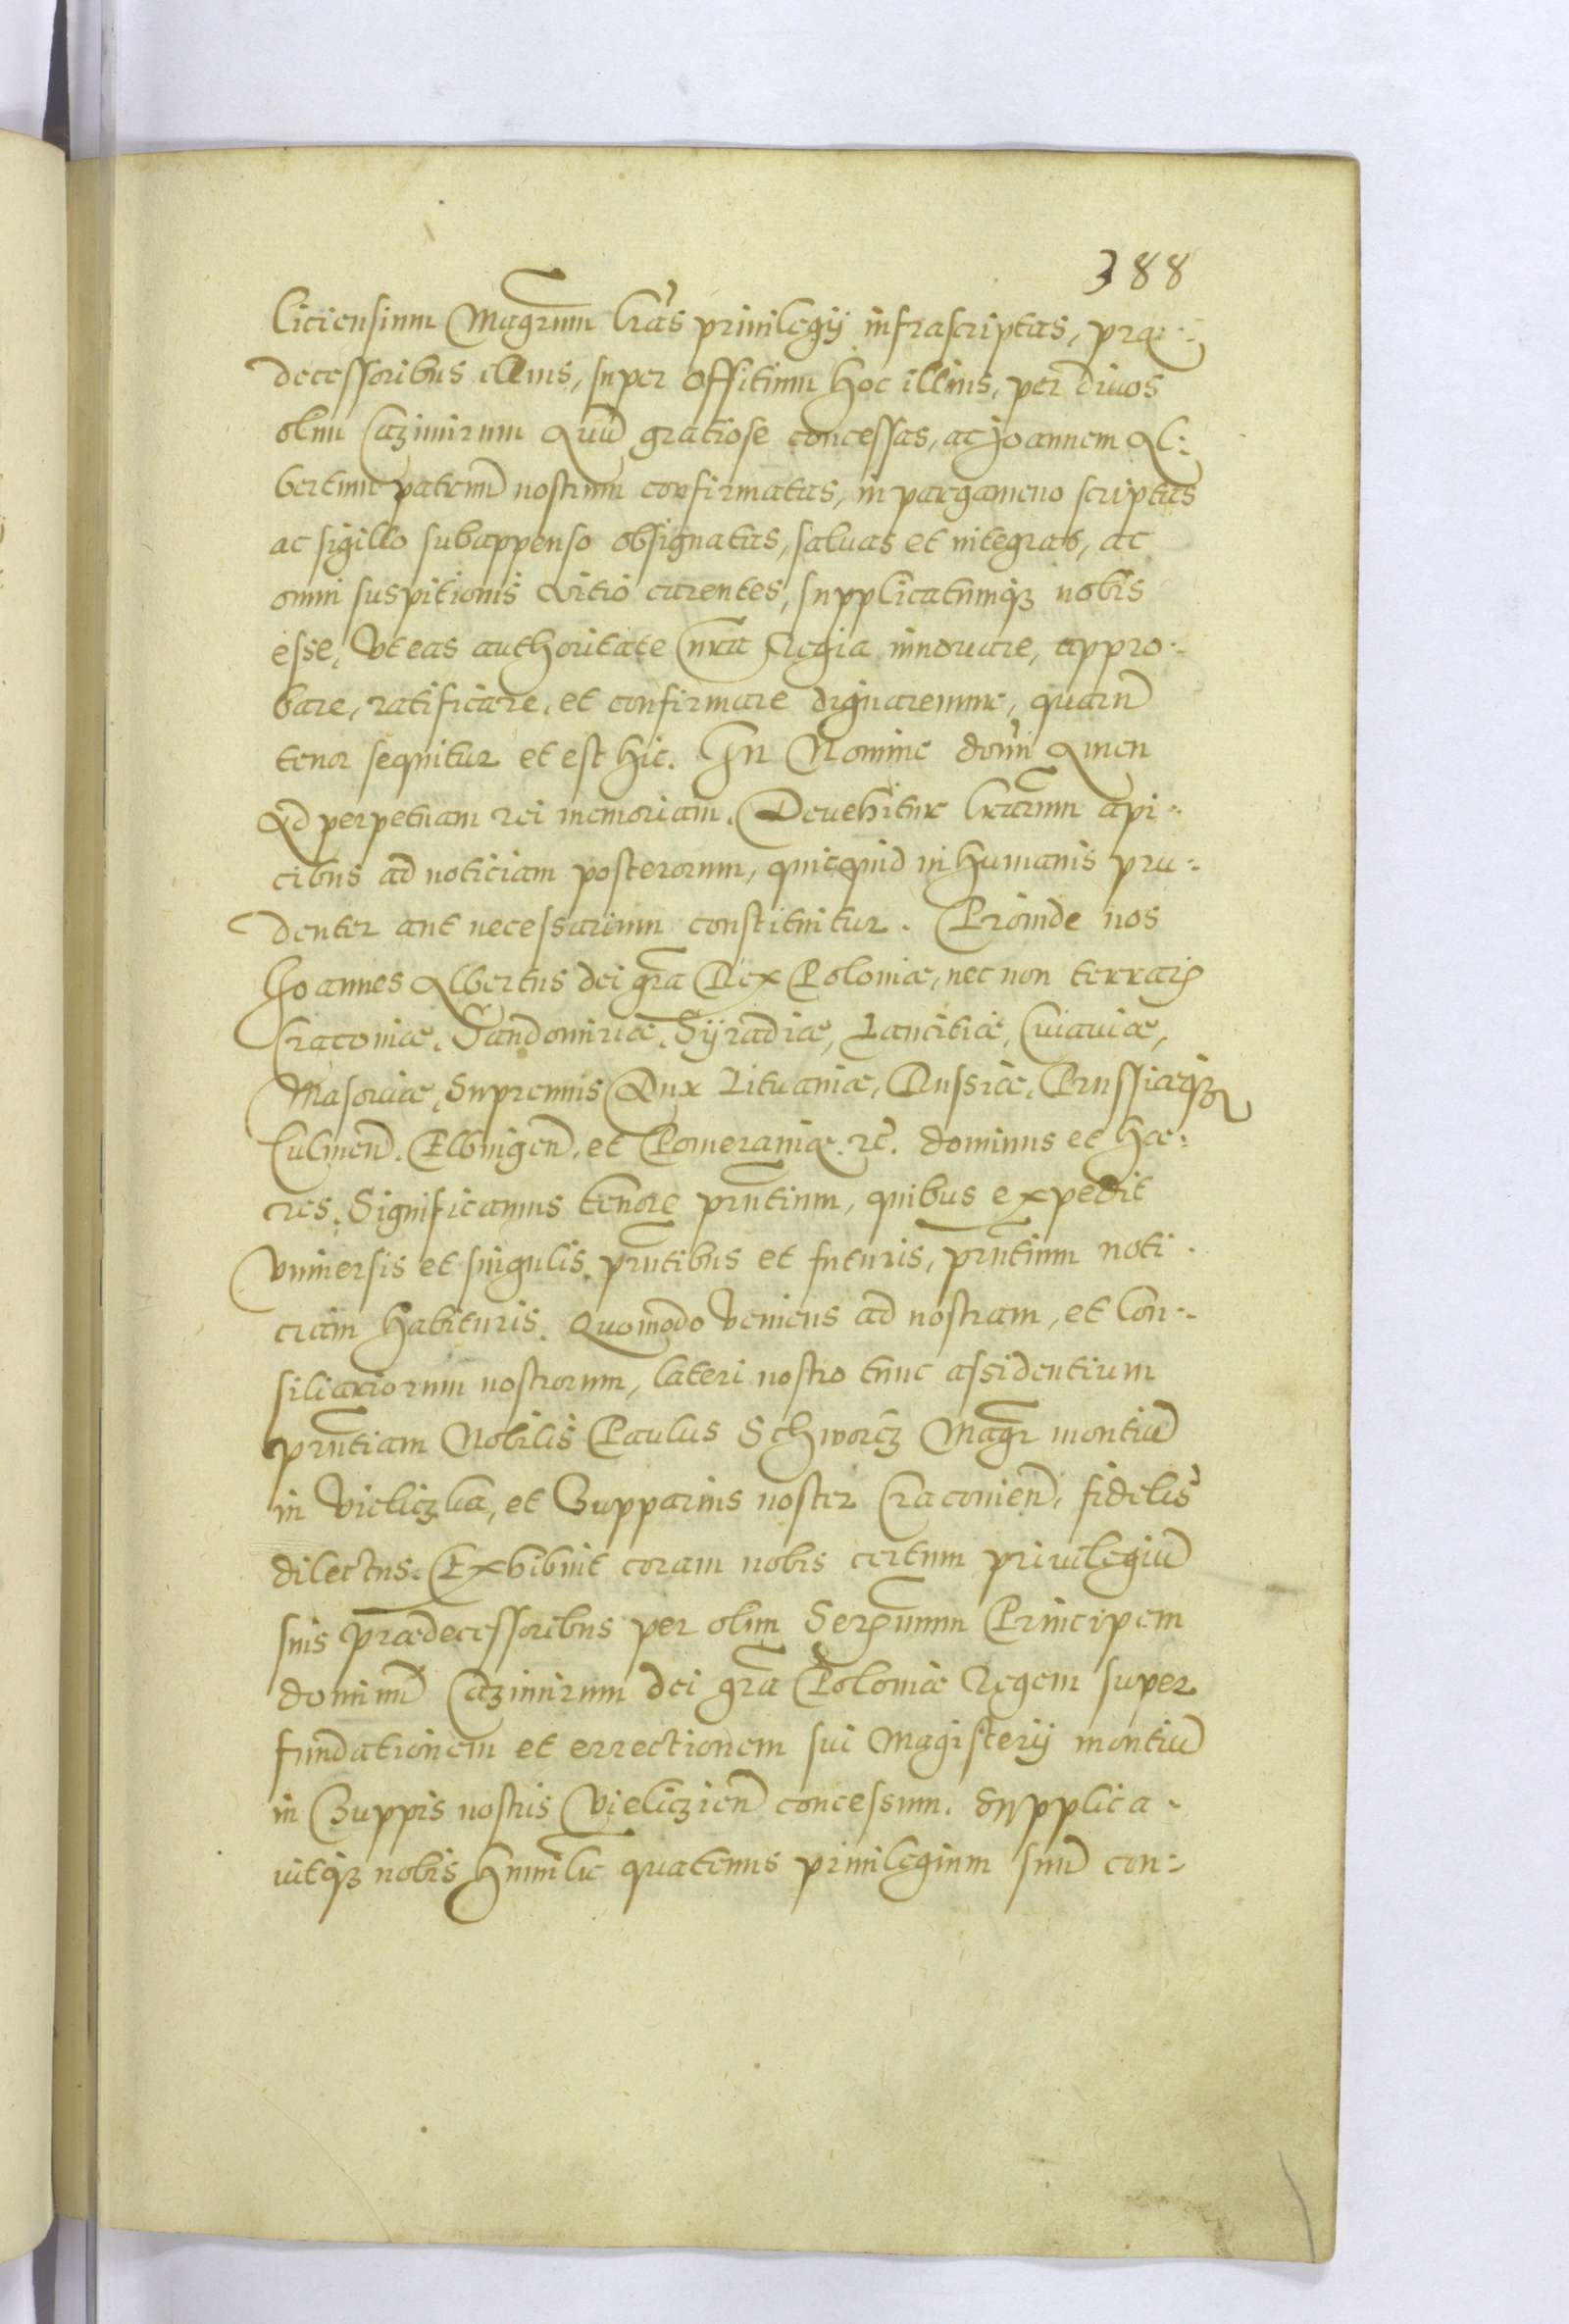 388
liciensium Magrum lras priuilegij infrascriptas, prae-
decessoribus illius, super offitium hoc illius, per diuos
olim Cazimirum Auum gratiose concessas, ac Joannem Al-
bertum patruum nostrum confirmatas, in pargameno scriptas
ac sigillo subappenso obsignatas, saluas et integras, ac
omni suspitionis vitio carentes, supplicatumqꝫ nobis
esse, vt eas authoritate nra Regia innouare, appro-
bare, ratificare, et confirmare dignaremur, quarum
tenor sequitur et est hic. In Nomine domi Amen
Ad perpetuam rei memoriam. Deuehitur lrarum api-
cibus ad noticiam posterorum, quicquid in humanis pru-
denter aut necessarium constituitur. Proinde nos
Joannes Albertus dei gra Rex Poloniae, nec non terrarꝫ
Cracoviae, Sandomiriae, Syradiae, Lancitiae, Cuiauiae,
Masoviae, Supremus Dux Lituaniae, Russiae, Prussiaeqꝫ
Culmen. Elbingen. et Pomeraniae. rc. dominus et hae-
res. Significamus tenore prntium, quibus expedit
vniuersis et singulis, prntibus et futuris, prntium noti-
ciam habituris. Quomodo veniens ad nostram, et Con-
siliariorum nostrorum, lateri nostro tunc assidentium
prntiam Nobilis Paulus Schworcz Magr montiū
in Vieliczka, et Zupparius noster Cracouien. fidelis
dilectus. Exhibuit coram nobis certum priuilegiū
suis praedecessoribus per olim Serꝫnum Principem
dominū Cazimirum dei gra Poloniae Regem super
fundationem et errectionem sui Magisterij montiū
in Zuppis nostris Vielicien concessum. Supplica-
uitqꝫ nobis humilie quatenus priuilegium suū con-